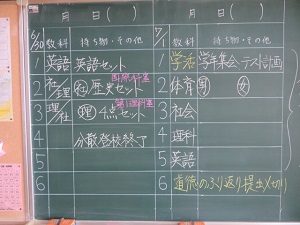 月 日( ) 月 日( )
6/30 教科 持ち物・その他 7/1 教科 持ち物・その他
1 英語 英語セット 1 学活 学年集会 テスト計画
2 社/理 社 歴史セット 2 体育 男 女
3 理/社 理 4点セット 3 社会
第1理科室
4 分散登校終了 4 理科
5 5 英語
6 6 道徳のふり返り提出〆切り